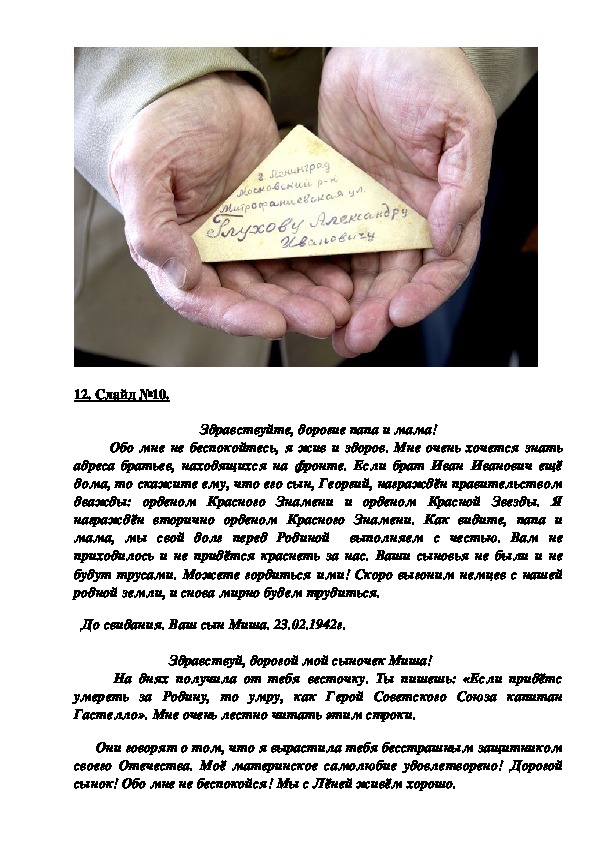 г Ленинград
Московский р-н
Митрофаниевская ул.
Глухову Александру
Ивановичу
12. Слайд №10.
Здравствуйте, дорогие папа и мама!
Обо мне не беспокойтесь, я жив и здоров. Мне очень хочется знать
адреса братьев, находящихся на фронте. Если брат Иван Иванович ещё
дома, то скажите ему, что его сын, Георгий, награждён правительством
дважды: орденом Красного Знамени и орденом Красной Звезды. Я
награждён вторично орденом Красного Знамени. Как видите, папа и
мама, мы свой долг перед Родиной выполняем с честью. Вам не
приходилось и не придётся краснеть за нас. Ваши сыновья не были и не
будут трусами. Можете гордиться ими! Скоро выгоним немцев с нашей
родной земли, и снова мирно будем трудиться.
До свидания. Ваш сын Миша. 23.02.1942г.
Здравствуй, дорогой мой сыночек Миша!
На днях получила от тебя весточку. Ты пишешь: «Если придётс
умереть за Родину, то умру, как Герой Советского Союза капитан
Гастелло». Мне очень лестно читать этим строки.
Они говорят о том, что я вырастила тебя бесстрашным защитником
своего Отечества. Моё материнское самолюбие удовлетворено! Дорогой
сынок! Обо мне не беспокойся! Мы с Лёней живём хорошо.